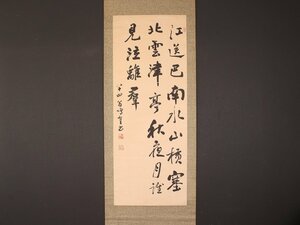 江送巴南水山橫塞
北雲津亭秋夜月誰
見泣離羣